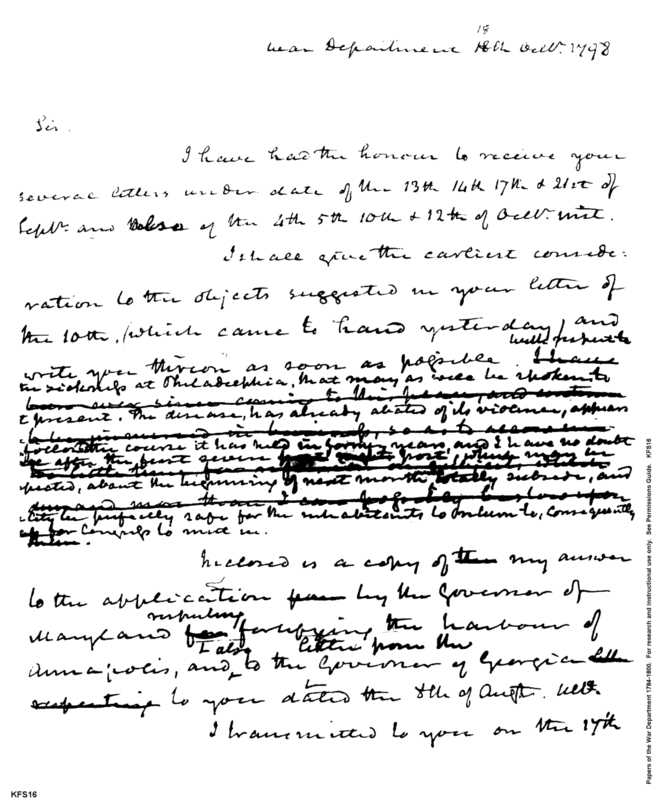 War Department 18th Octbr. 1798
Sir.
I have had the honour to receive your
several letters under date of the 13th 14th 17th & 21st of
Septr. and also of the 4th 5th 10th & 12th of Octbr. inst.
I shall give the earliest conside:
ration to the objects suggested in your letter of
the 10th, (which came to hand yesterday) and
write you thereon as soon as possible. with respect to
the sickness at Philadelphia, that may as well be spoken to
at present. The disease, has already abated of its violence, appears
to follow the course it has held in former years, and I have no doubt
after the first severe frost, which may be
expected, about the beginning of next month totally subside, and
the City be perfectly safe for the inhabitants to return to, consequently
for Congress to meet in.
Inclosed is a copy of my answer
to the application by the Governor of
Maryland respecting fortifying the harbour of
Annapolis, and also to the letter from the Governor of Georgia
to you dated the 8th of Augt. ult.
I transmitted to you on the 17th
KFS16
Papers of the War Department 1784-1800. For research and instructional use only. See Permissions Guide. KFS16